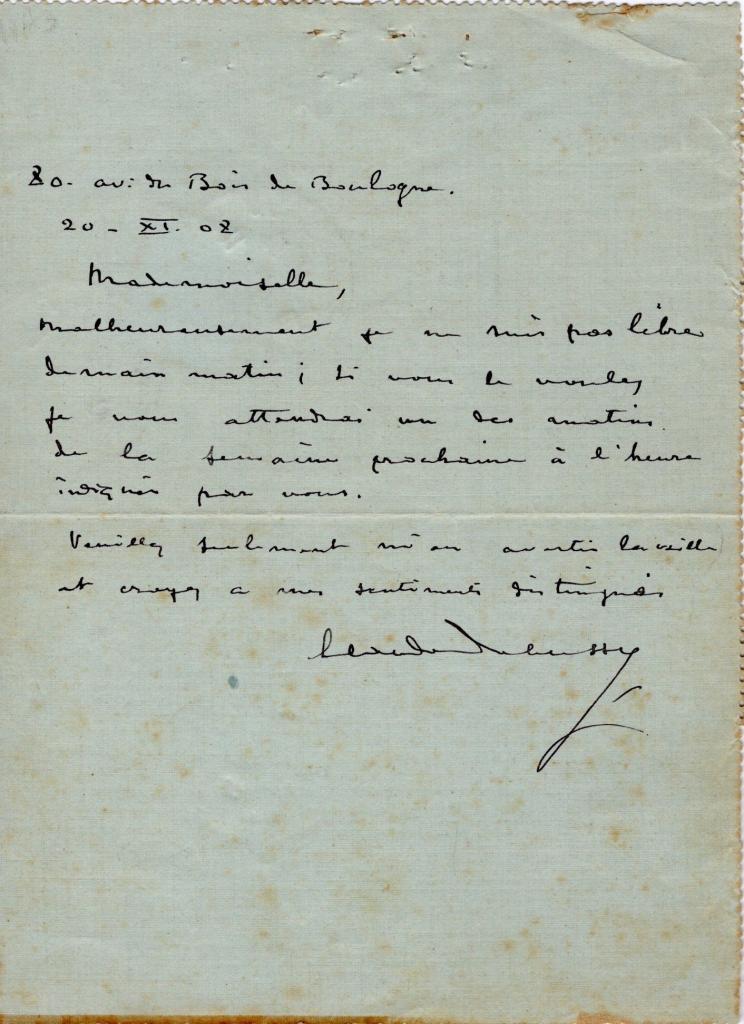 80. av: du Bois de Boulogne.
20 - XI. 08
Mademoiselle,
Malheureusement je ne suis pas libre
demain matin ; si vous le voulez
je vous attendrai un des matins
de la semaine prochaine à l'heure
indiquée par vous.
Veuillez seulement m'en avertir la veille
et croyez à mes sentiments distingués
Claude Debussy